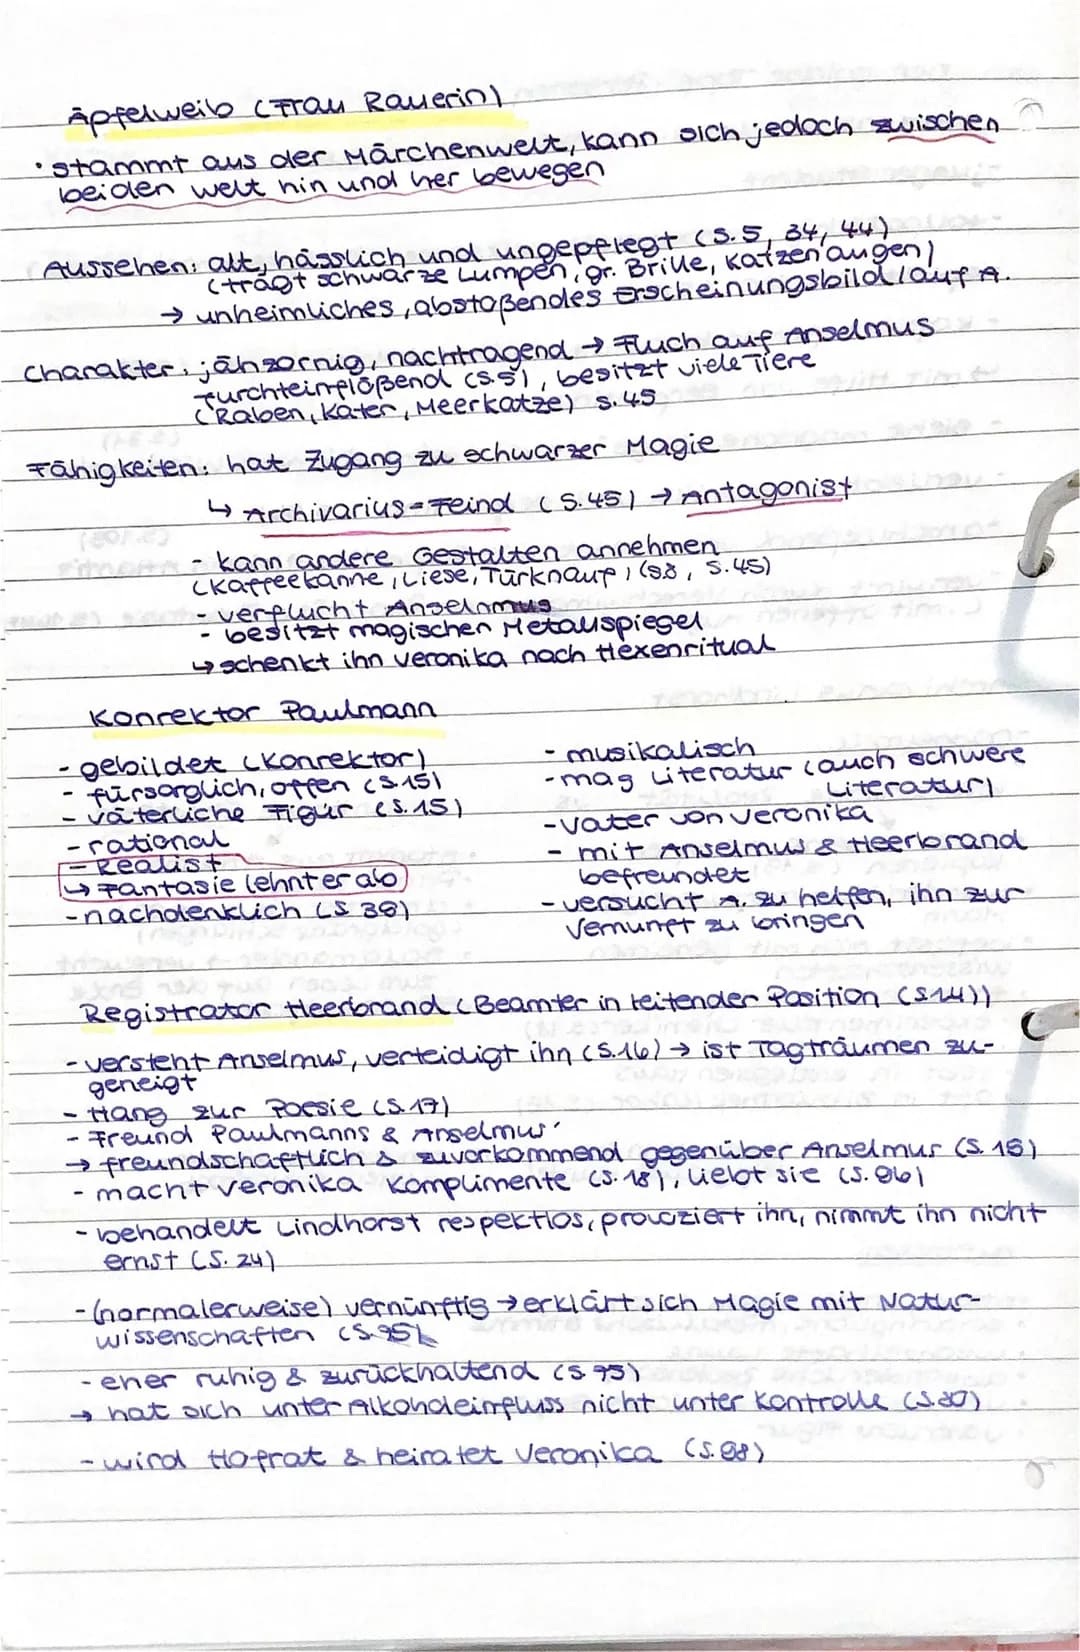 Äpfelweib (Frau Rauerin)
· stammt aus der Märchenwelt, kann sich jedoch zwischen
beiden welt hin und her bewegen
Aussehen: alt, hässlich und ungepflegt (S.5, 34, 44)
(trägt schwarze Lumpen, gr. Brille, Katzenaugen)
→ unheimliches, abstoßendes Erscheinungsbild (auf A.
Charakter: jähzornig, nachtragend → Fluch auf Anselmus
furchteinflößend (S.5), besitzt viele Tiere
(Raben, Kater, Meerkatze) S.45
Fähigkeiten: hat Zugang zu schwarzer Magie
↳ Archivarius-Feind (S.45) → Antagonist
- kann andere Gestalten annehmen
(Kaffeekanne, Liese, Türknauf) (S.8, S.45)
- verflucht Anselmus
- besitzt magischen Metallspiegel
↳ schenkt ihn Veronika nach Hexenritual
Konrektor Paulmann
- gebildet (Konrektor)
- fürsorglich, offen (S.15)
- väterliche Figur (S.15)
- rational
- Realist
↳ Fantasie lehnt er ab
- nachdenklich (S 38)
- musikalisch
- mag Literatur (auch schwere
Literatur)
- Vater von Veronika
- mit Anselmus & Heerbrand
befreundet
- versucht A. zu helfen, ihn zur
Vernunft zu bringen
Registrator Heerbrand (Beamter in leitender Position (S14))
- versteht Anselmus, verteidigt ihn (S.16) → ist Tagträumen zu-
geneigt
- Hang zur Poesie (S.17)
- Freund Paulmanns & Anselmus'
→ freundschaftlich & zuvorkommend gegenüber Anselmus (S. 18)
- macht Veronika Komplimente (S.18), liebt sie (S.96)
- behandelt Lindhorst respektlos, provoziert ihn, nimmt ihn nicht
ernst (S. 24)
- (normalerweise) vernünftig → erklärt sich Magie mit Natur-
wissenschaften (S.95)
- eher ruhig & zurückhaltend (S.75)
→ hat sich unter Alkoholeinfluss nicht unter Kontrolle (S.80)
- wird Hofrat & heiratet Veronika (S.98)